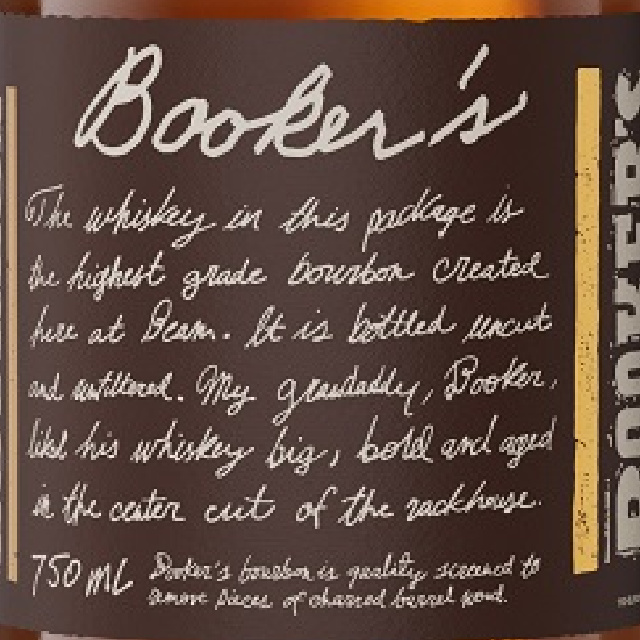 Booker's
The whiskey in this package is
the highest grade bourbon created
here at Beam. It is bottled uncut
and unfiltered. My grandaddy, Booker,
liked his whiskey big, bold and aged
in the center cut of the rackhouse.
750 ML
Booker's bourbon is quality screened to
remove pieces of charred barrel wood.
BOOKER'S